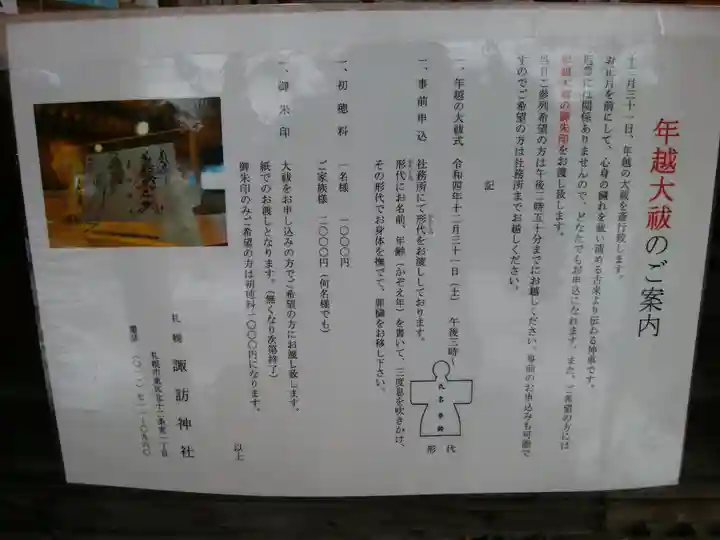 年越大祓のご案内
十二月三十一日、年越の大祓を斎行致します。
お正月を前にして、心身の穢れを祓い清める古来より伝わる神事です。
氏子には関係ありませんので、どなたでもお申込になれます。また、ご希望の方には
年越大祓の御朱印をお渡し致します。
当日ご参列希望の方は午後二時五十分までにお越しください。事前のお申込みも可能で
すのでご希望の方は社務所までお越しください。
記
一、年越の大祓式 令和四年十二月三十一日(土) 午後三時〜
一、事前申込 社務所にて形代をお渡ししております。
形代にお名前、年齢(かぞえ年)を書いて、三度息を吹きかけ、
その形代でお身体を撫でて、罪穢をお移し下さい。
氏名 年齢
形代
一、初穂料 一名様 一〇〇〇円
ご家族様 二〇〇〇円(何名様でも)
一、御朱印 大祓をお申し込みの方でご希望の方にお渡し致します。
紙でのお渡しとなります。(無くなり次第終了)
御朱印のみご希望の方は初穂料一〇〇〇円になります。
以上
札幌 諏訪神社
札幌市東区北十二条東一丁目
電話 (〇一一)七一一-〇九六〇